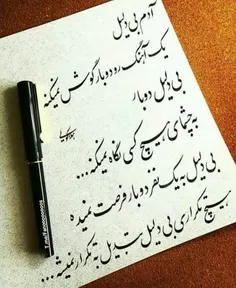 آدم بی دلیل
یک آهنگ رو دوبار گوش نمیکنه
بی دلیل دوبار
به چشمای هیچ کسی نگاه نمیکنه...
بی دلیل به یک نفر دوبار فرصت نمیده
هیچ تکراری بی دلیل تبدیل به تکرار نمیشه...